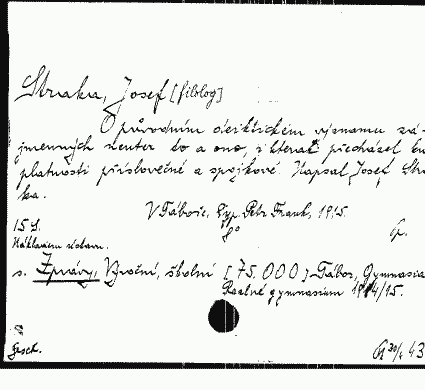 Straka, Josef [filolog]
O původním deiktickém významu zá-
jmenných neuter to a ono, z kterak předcházel
platnosti příslovečné a spojkové. Napsal Josef Stra-
ka.
V Táboře, Typ. Petr Frank, 1915.
8°
15 S.
Nákladem ústavu.
s. Zprávy, Výroční, školní [75.000] Tábor, Gymnasia
Reálné gymnasium 1914/15.
Gesch.
43